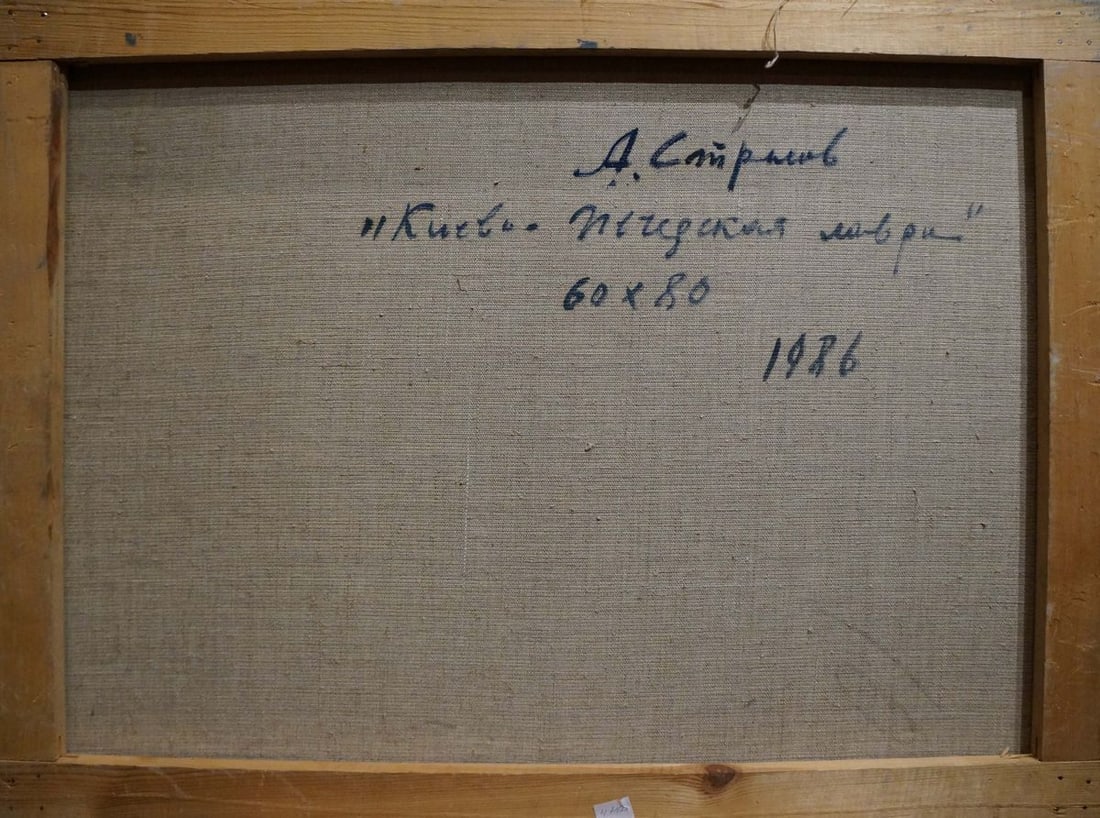 А. Стрелов
"Киево-Печерская лавра"
60 х 80
1986